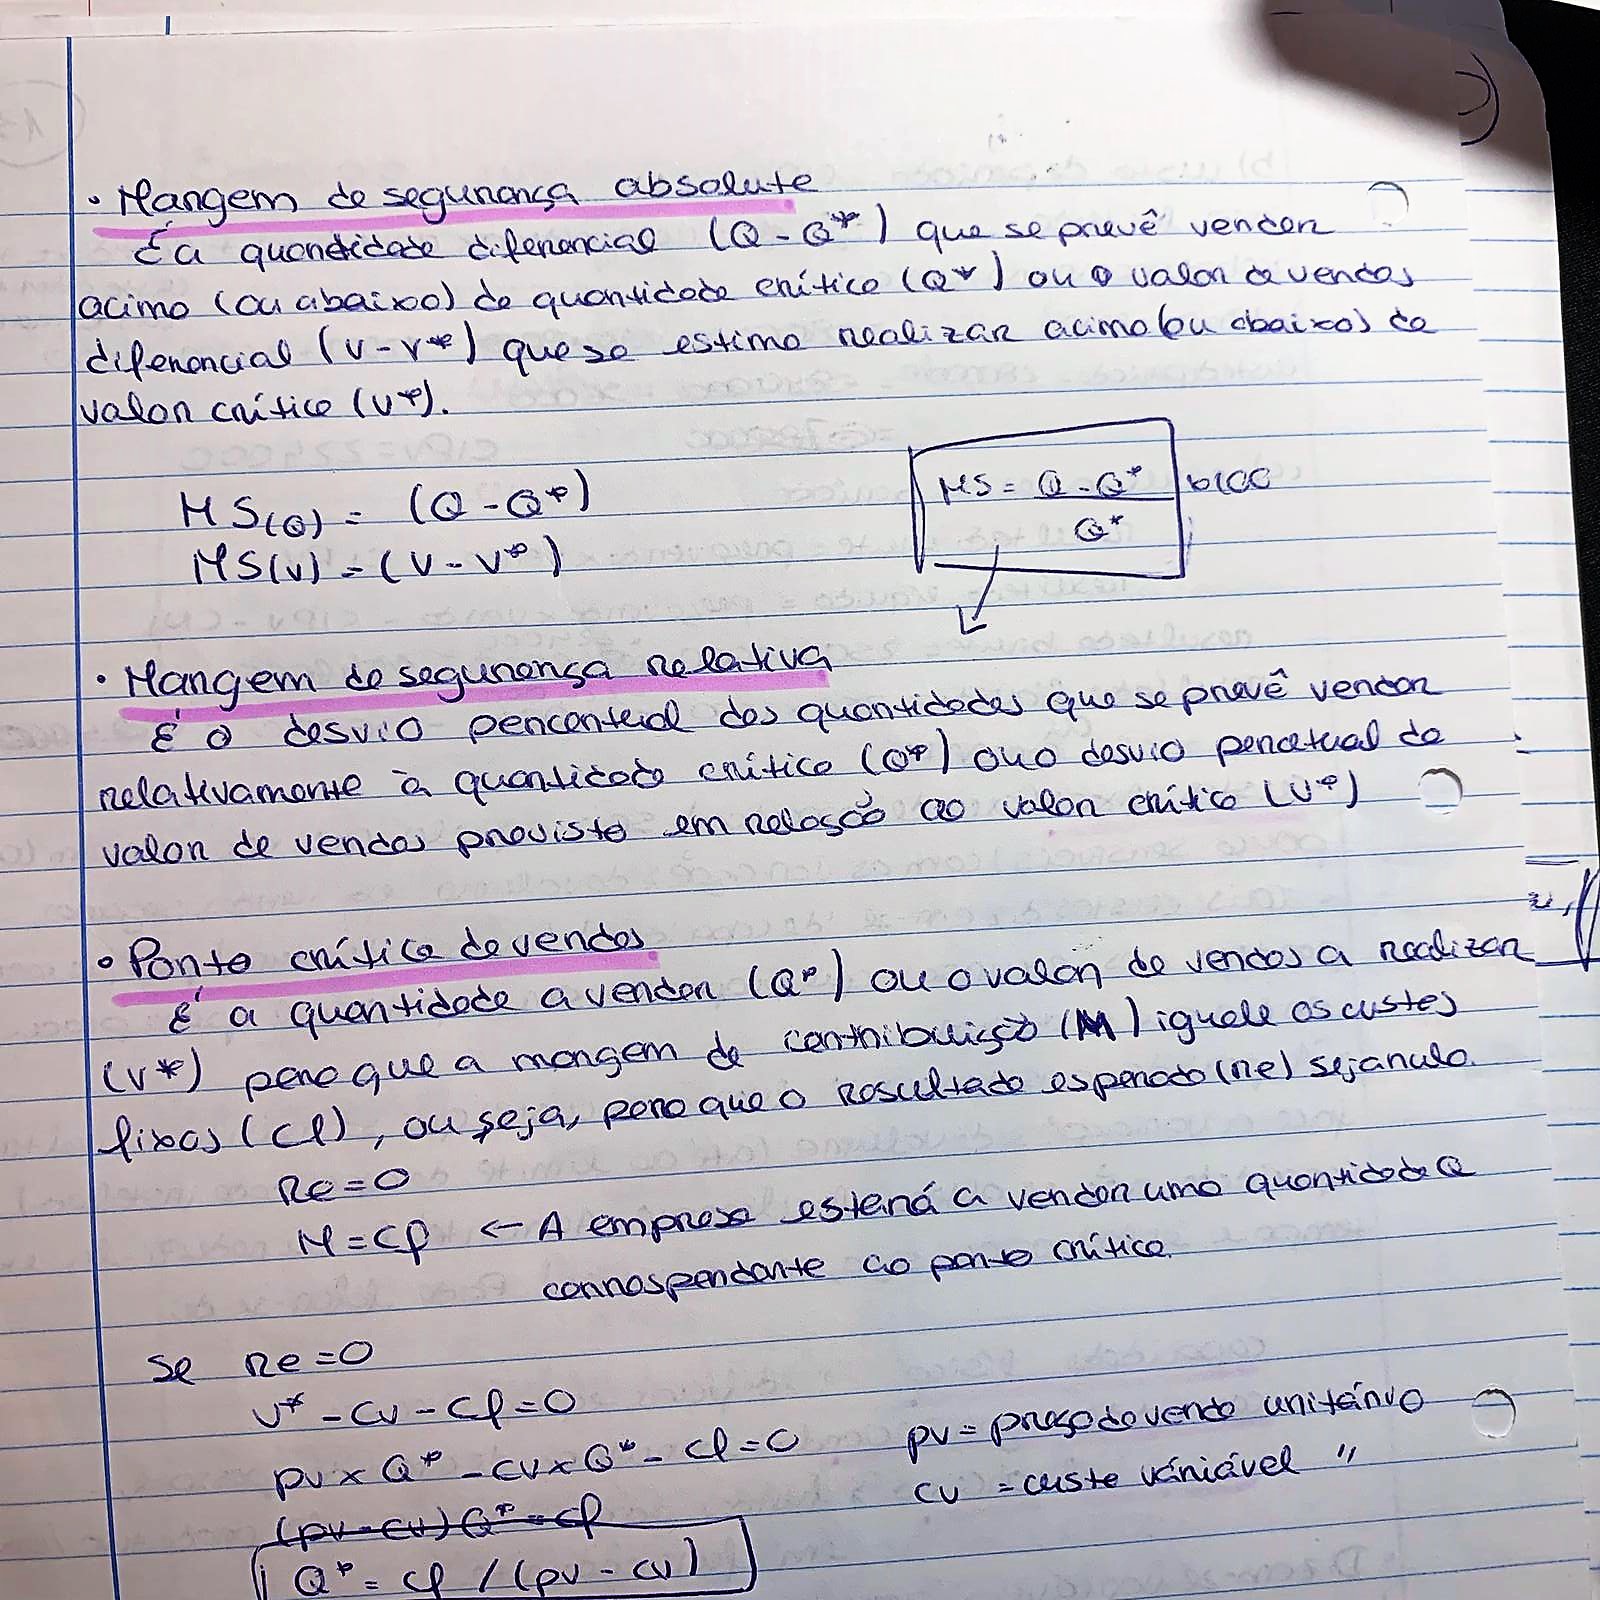 • Margem de segurança absoluta
É a quantidade diferencial (Q - Q*) que se prevê vender
acima (ou abaixo) da quantidade crítica (Q*) ou o valor de vendas
diferencial (V - V*) que se estima realizar acima (ou abaixo) do
valor crítico (V*).
MS(Q) = (Q - Q*)
MS = Q - Q* / Q* x100
MS(V) = (V - V*)
• Margem de segurança relativa
É o desvio percentual das quantidades que se prevê vender
relativamente à quantidade crítica (Q*) ou o desvio percetual do
valor de vendas previsto em relação ao valor crítico (V*)
• Ponto crítico de vendas
É a quantidade a vender (Q*) ou o valor de vendas a realizar
(V*) para que a margem de contribuição (M) iguale os custos
fixos (Cf), ou seja, para que o resultado esperado (re) seja nulo.
Re = 0
M = Cf ← A empresa estará a vender uma quantidade Q
correspondente ao ponto crítico.
Se Re = 0
V* - CV - Cf = 0
pv x Q* - cv x Q* - Cf = 0
pv = preço de venda unitário
cv = custo variável "
(pv - cv) Q* = Cf
Q* = Cf / (pv - cv)